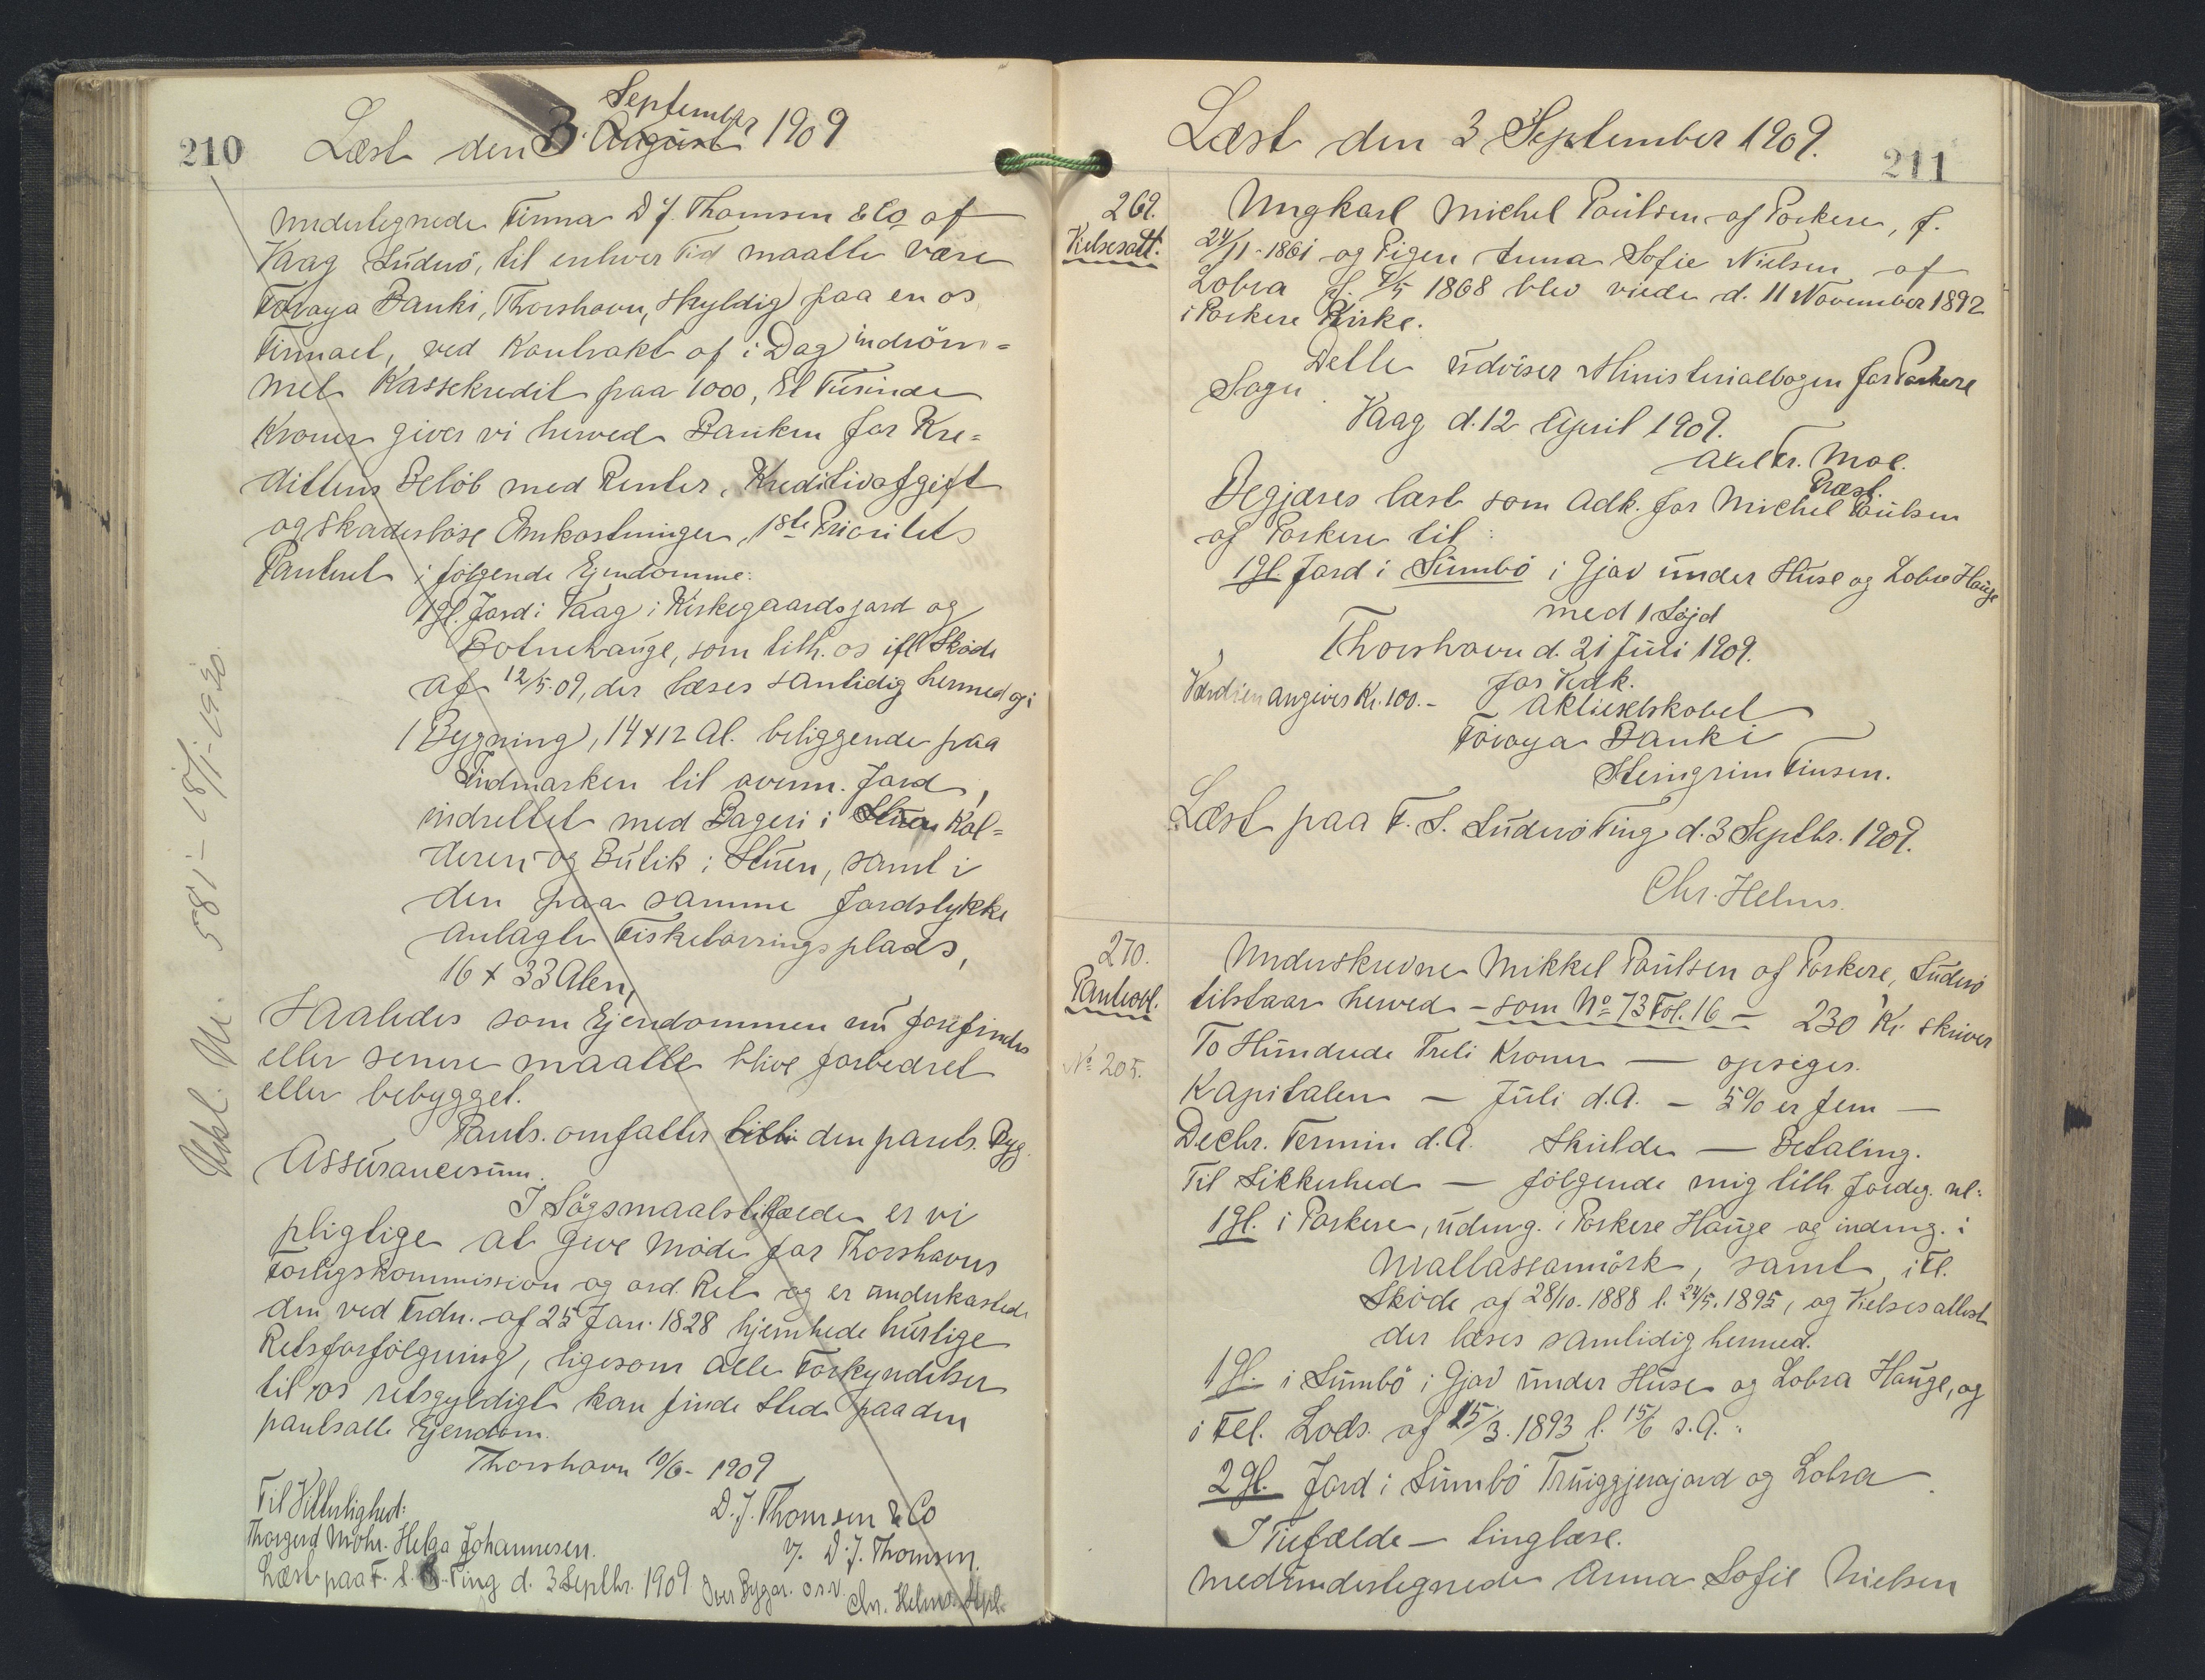 210
Læst den 3. August September 1909
undertegnede Firma D. J. Thomsen & Co af
Vaag Suderö, til enhver Tid maatte være
Föroya Banki, Thorshavn, skyldig paa en os
Firmaet, ved Kontrakt af i Dag indröm=
met Kassekredit paa 1000, Et Tusinde
Kroner giver vi herved Banken for Kre=
dittens Belöb med Renter, Kreditivafgift
og skadeslöse Omkostninger, 1ste Prioritets
Panteret i fölgende Ejendomme:
1 gl. Jord i Vaag i Kirkegaardsjord og
Botnehauge, som tilh. os ifl Sköde
af 12/5.09, der læses samtidig hermed og i
1 Bygning, 14 x 12 Al. beliggende paa
Indmarken til ovenn. Jord,
indrettet med Bageri i Stuen Kæl=
deren og Butik i Stuen, samt i
den paa samme Jordstykke
anlagte Fisketörringsplads,
16 x 33 Alen,
saaledes som Ejendommen nu forefindes
eller senere maatte blive forbedret
eller bebygget.
Pants. omfatter tillige den pants. Byg.
Assurancesum.
I Sögsmaalstilfælde er vi
pligtige at give Möde for Thorshavns
Forligskommission og ord. Ret og er underkastede
den ved Frdn. af 25 Jan. 1828 hjemlede hurtige
Retsforfölgning, ligesom alle Forkyndelser
til os retsgyldigt kan finde Sted paa den
pantsatte Ejendom.
Thorshavn 10/6- 1909
Til Vitterlighed:
D. J. Thomsen & Co
Thorgerd Mohr. Helga Johannesen.
v. D. J. Thomsen.
Læst paa F. S. S. Ting d. 3 Septbr. 1909 Over Bygn. o.s.v. Chr. Helms
Udsl. Nr. 581 - 18/1-1930.
Læst den 3 September 1909.
211
269.
Vielsesatt.
Ungkarl Michel Poulsen af Porkere, f.
24/11-1861 og Pigen Anna Sofie Nielsen af
Lobra f. 4/5 1868 blev viede d. 11 November 1892
i Porkere Kirke.
Dette udviser Ministerialbogen for Porkere
Sogn.
Vaag d. 12 April 1909.
Axel Fr. Moe.
Præst.
Begjæres læst som Adk. for Michel Poulsen
af Porkere til:
1 gl Jord i Sumbö i Gjov under Huse og Lobra Hauge
med 1 Söjd
Thorshavn d. 21 Juli 1909.
Værdien angives Kr. 100.-
for Vedk.
Aktieselskabet
Föroya Banki
Steingrim Finsen.
Læst paa F. S. Suderö Ting d. 3 Septbr. 1909.
Chr. Helms.
270.
Panteobl.
No 205.
Underskrevne Mikkel Poulsen af Porkere, Suderö
tilstaar herved - som No 73 Fol. 16 - 230 Kr. skriver
To Hundrede Treti Kroner — opsiges.
Kapitalen — Juli d.A. - 5% er fem —
Decbr. Termin d.A. Skulde — Betaling.
Til Sikkerhed — fölgende mig tilh Jordeg. nl:
1 gl. i Porkere, udmg. i Porkere Hauge og indmg. i
Mallassamörk, samt, ifl.
Sköde af 28/10.1888 l. 24/5.1895, og Vielsesattest
der læses samtidig hermed.
1 gl. i Sumbö i Gjov under Huse og Lobra Hauge, og
i Fll. Lods. af 15/3.1893 l. 15/6 s.A.:
2 gl. Jord i Sumbö Truiggjerajord og Lobra
I Tilfælde — tinglæse.
Medundertegnede Anna Sofie Nielsen